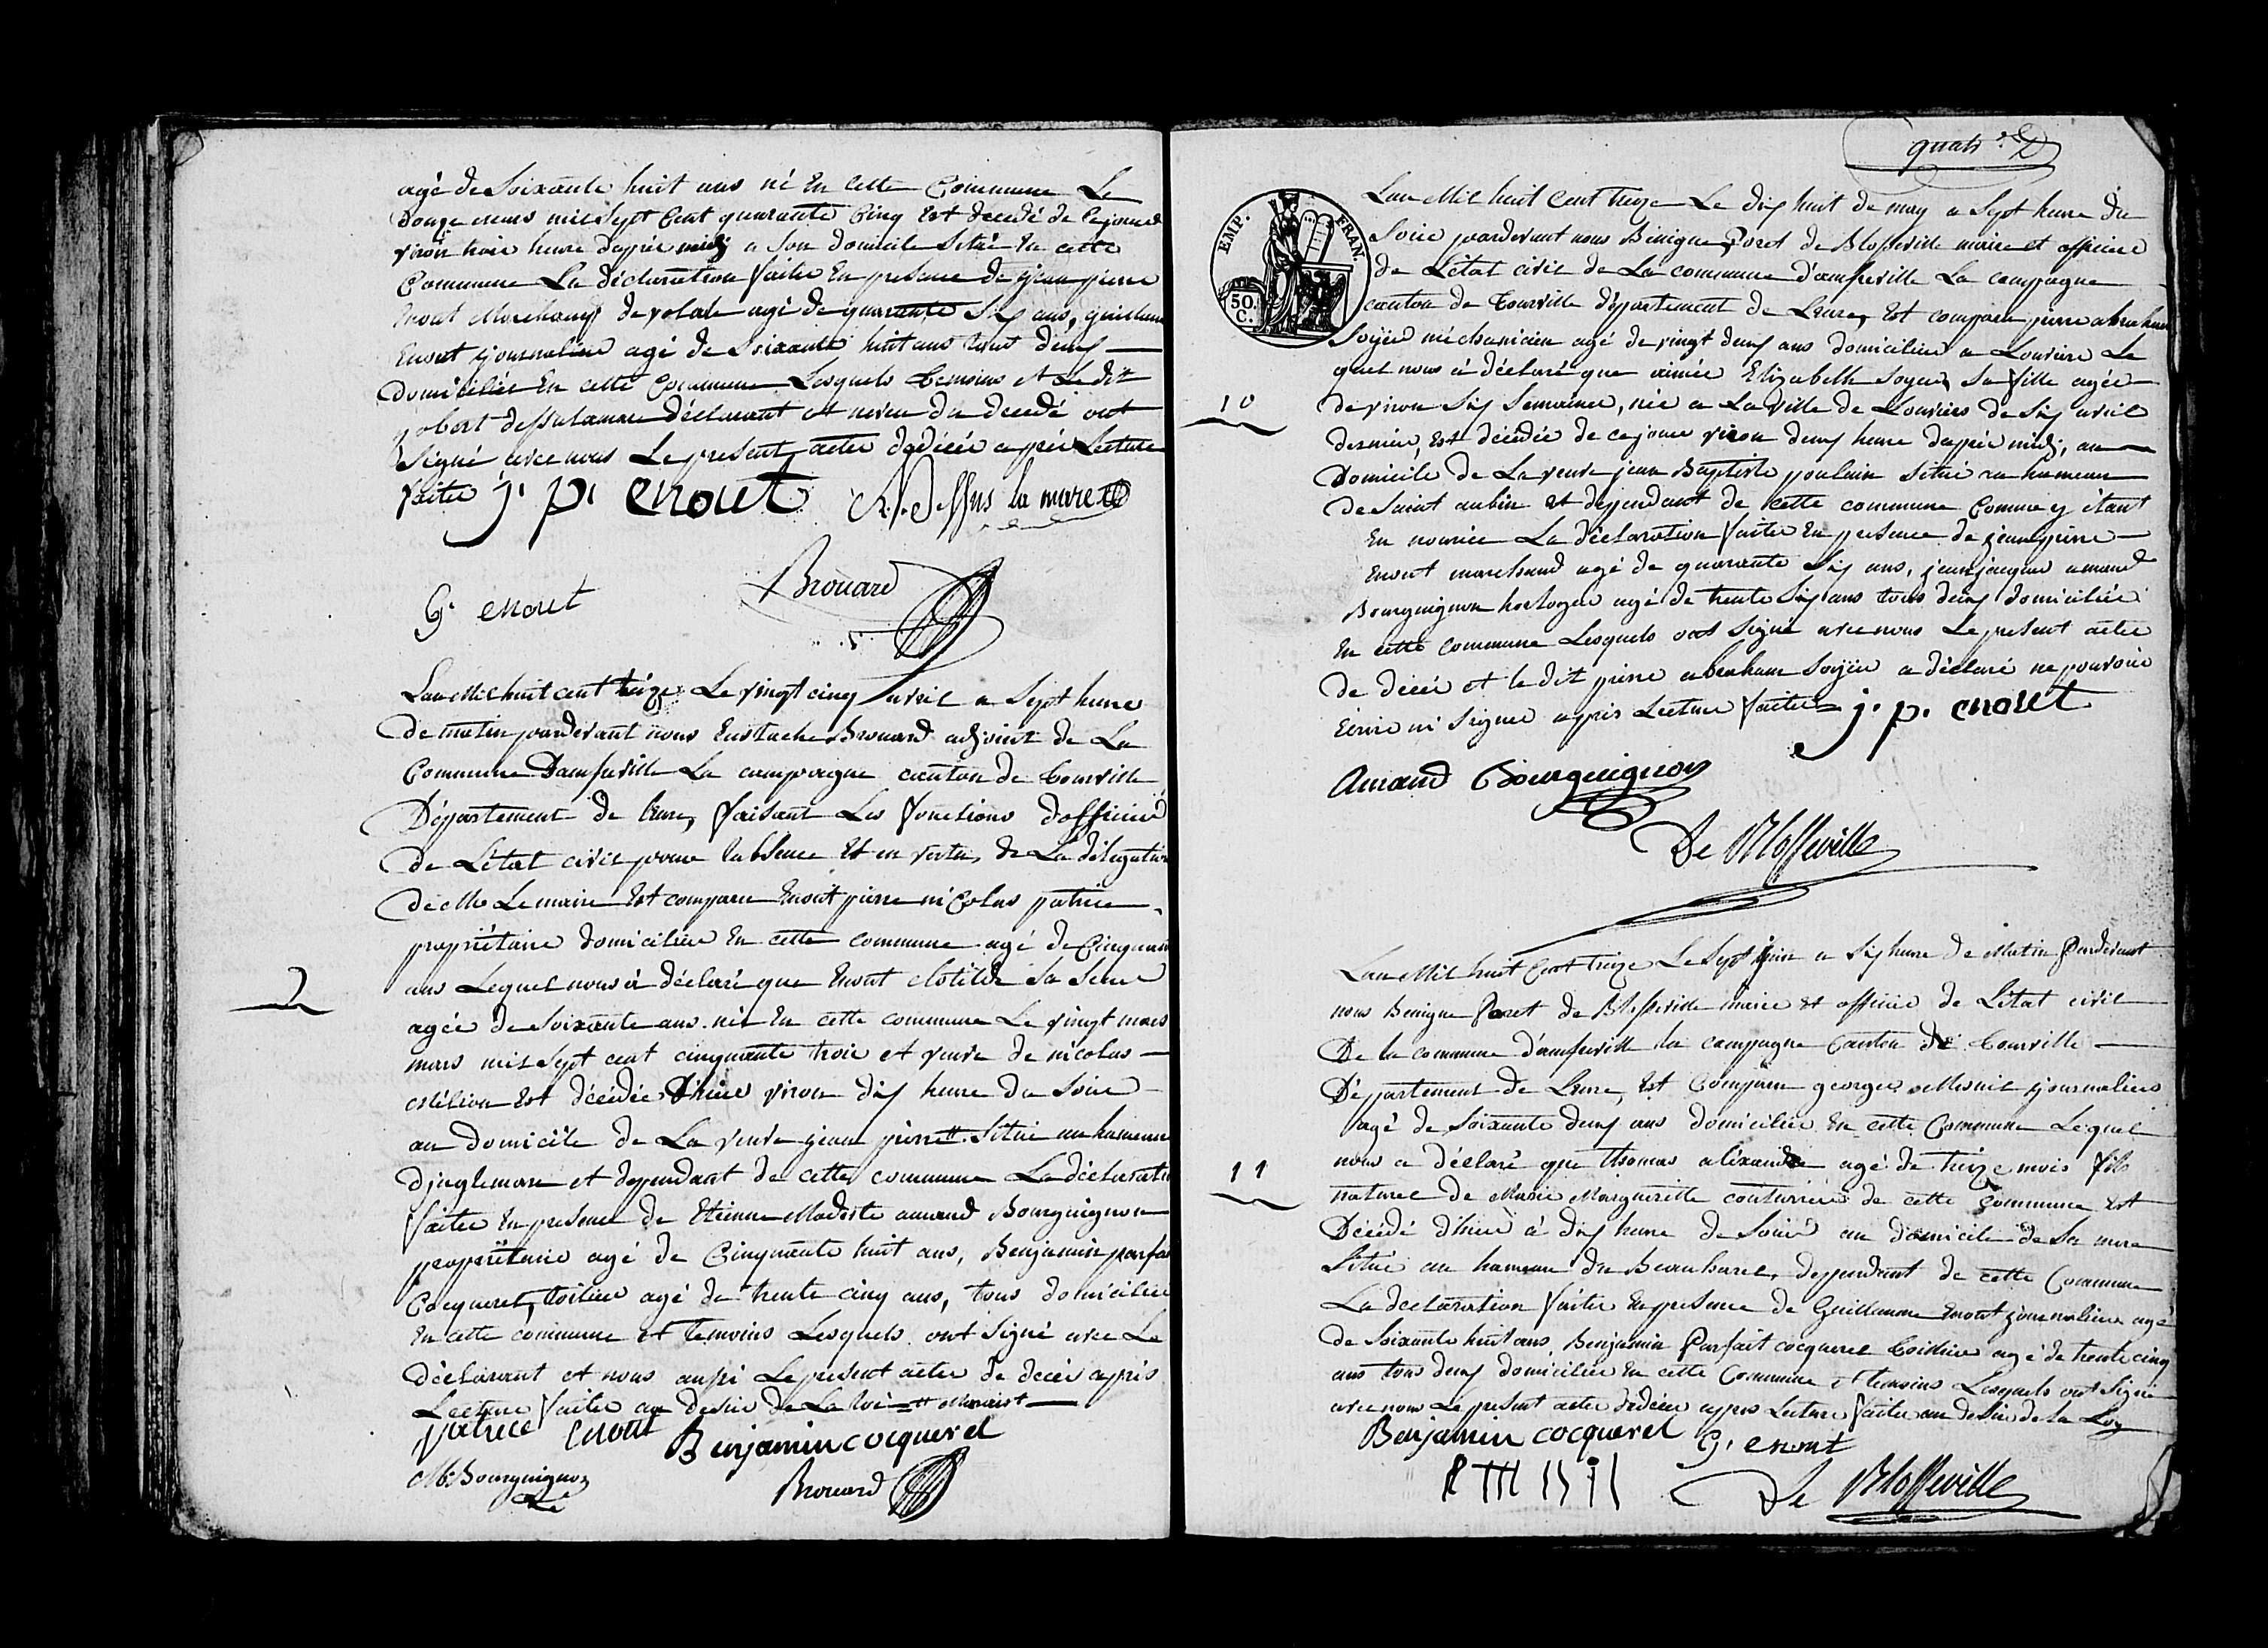 agé de Soixante huit ans né En cette Commune Le
douze mars mil Sept Cent quarante Cinq Est décédé de ce jourd
viron trois heure daprée midy a Son domicile Situé En cette
Commune La déclaration faitte En presence de jean pierre
Enout Marchand de volale agé de quarante Six ans, guillaume
Enout journalier agé de Soixante huit ans tous deux
domiciliée En cette Commune Lesquels temoins et Le dit
robert dessulamare déclarant et neveu du décédé ont
Signé avec nous Le present acte dedécée aprée Lecture
faitte j. p. enout R. Dessus la mare
G. enout Brouard
Lan Mil huit cent treize Le vingt cinq avril a Sept heure
De matin pardevant nous Eustache Brouard adjoint de La
Commune Damfreville La campagne canton de tourville
Département de leure, faisant Les fonctions dofficier
de Létat civil pour labsence Et en vertu de La délégation
de Mr Le maire Est comparu Enout pierre nicolas patrice
propriétaire domicilier En cette commune agé de Cinquante
ans Lequel nous à déclaré que Enout Clotilde Sa Seur
agée de Soixante ans née En cette commune Le vingt mars
9
mars mil Sept cent cinquante trois et veuve de nicolas
Est décédée D'hier viron dix heure du Soire
au domicile de La veuve jean pierre Situé au hameau
et dependant de cette commune La déclaration
faitte En presence de Etienne Modeste amand Bourguignon
propriétaire agé de Cinquante huit ans, Benjamin parfait
Cocquerel, toilier agé de trente cinq ans, tous domiciliée
En cette commune et temoins Lesquels ont Signé avec Le
déclarant et nous aussi Le present acte de décée aprés
Lecture faitte au desir de La loi
patrice Enout Benjamin cocquerel
M. Bourguignon Brouard
EMP. FRAN.
50. C.
Lan Mil huit Cent treize Le dix huit de may a Sept heure du
Soire pardevant nous Bénigne Poret de Blosseville maire et officier
de Létat civil de La commune d'amfreville La campagne
canton de tourville département de Leure, Est comparu pierre abraham
Soyer méchanicien agé de vingt deux ans domicilier a Louviers Le
quel nous à déclaré que aimée Elizabelle Soyer Sa fille agée
10
de viron Six Semaines, née a La ville de Louviers de Six avril
dernier, Est décédée de ce jour viron deux heure daprée midy, au
Domicile de La veuve jean Baptiste poulain Situé au hameau
de Saint aubin et dependant de cette commune Comme y étant
En nourice La déclaration faitte En presence de jean pierre
Enout marchand agé de quarante Six ans, jean jacques amand
Bourguignon horloger agé de trente Six ans tous deux domiciliée
En cette commune Lesquels ont Signé avec nous Le present acte
de décée et le dit pierre abraham Soyer a déclaré ne pouvoir
Ecrire ni Signer aprés Lecture faitte j. p. enout
Amand Bourguignon
De Blosseville
Lan Mil huit Cent treize Le Sept juin a Six heure de Matin Pardevant
nous Benigne Poret de Blosseville maire et officier de Létat civil
De la commune d'amfreville la campagne Canton de tourville
Département de Leure, Est Comparu georges Mesnil journaliers
agé de Soixante deux ans domicilier En cette Commune Lequel
11
nous a déclaré que thomas alexandre agé de treize mois fils
naturel de Marie Margueritte couturriere de cette Commune est
Décédé d'hier à dix heure de Soire au domicile de Sa mere
Situé au hameau du Beauharel, dependant de cette Commune
La declaration faitte En presence de Guillaume Enout journalier agé
de Soixante huit ans, Benjamin Parfait cocquerel toillier agé de trente cinq
ans tous deux domiciliée En cette Commune et temoins Lesquels ont Signé
avec nous Le present acte dedécée aprés Lecture faitte au desir de la Loy
Benjamin cocquerel G. enout
De Blosseville